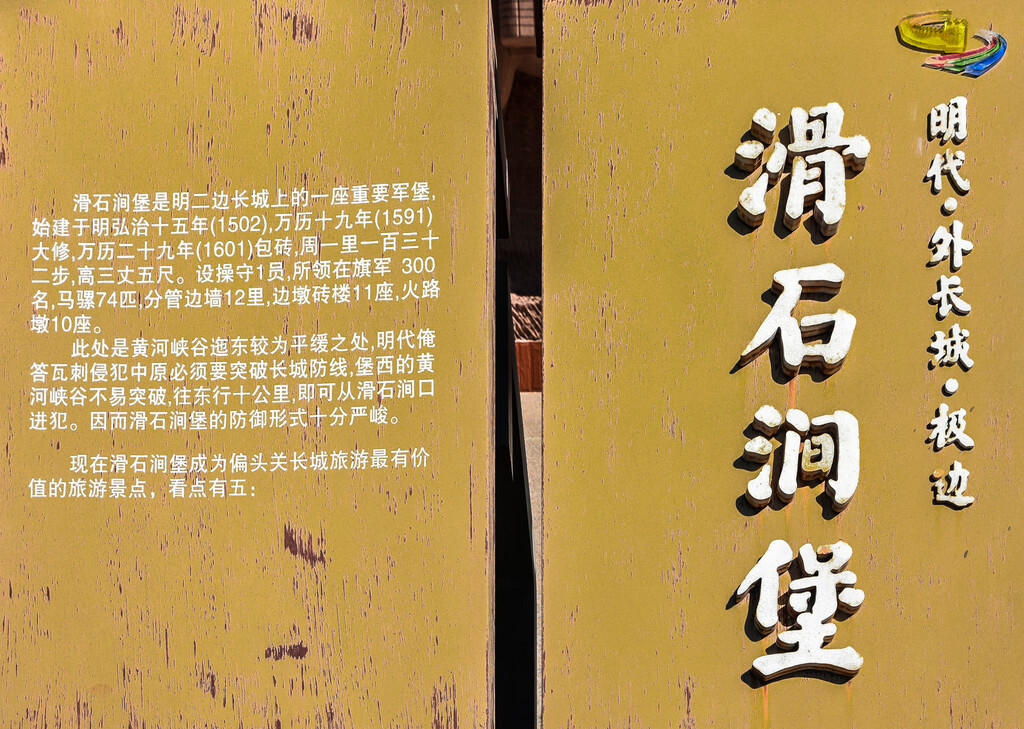 滑石涧堡是明二边长城上的一座重要军堡,
始建于明弘治十五年(1502),万历十九年(1591)
大修,万历二十九年(1601)包砖,周一里一百三十
二步,高三丈五尺。设操守1员,所领在旗军 300
名,马骡74匹,分管边墙12里,边墩砖楼11座,火路
墩10座。
此处是黄河峡谷迤东较为平缓之处,明代俺
答瓦刺侵犯中原必须要突破长城防线,堡西的黄
河峡谷不易突破,往东行十公里,即可从滑石涧口
进犯。因而滑石涧堡的防御形式十分严峻。
现在滑石涧堡成为偏头关长城旅游最有价
值的旅游景点，看点有五：
明代·外长城·极边
滑石涧堡